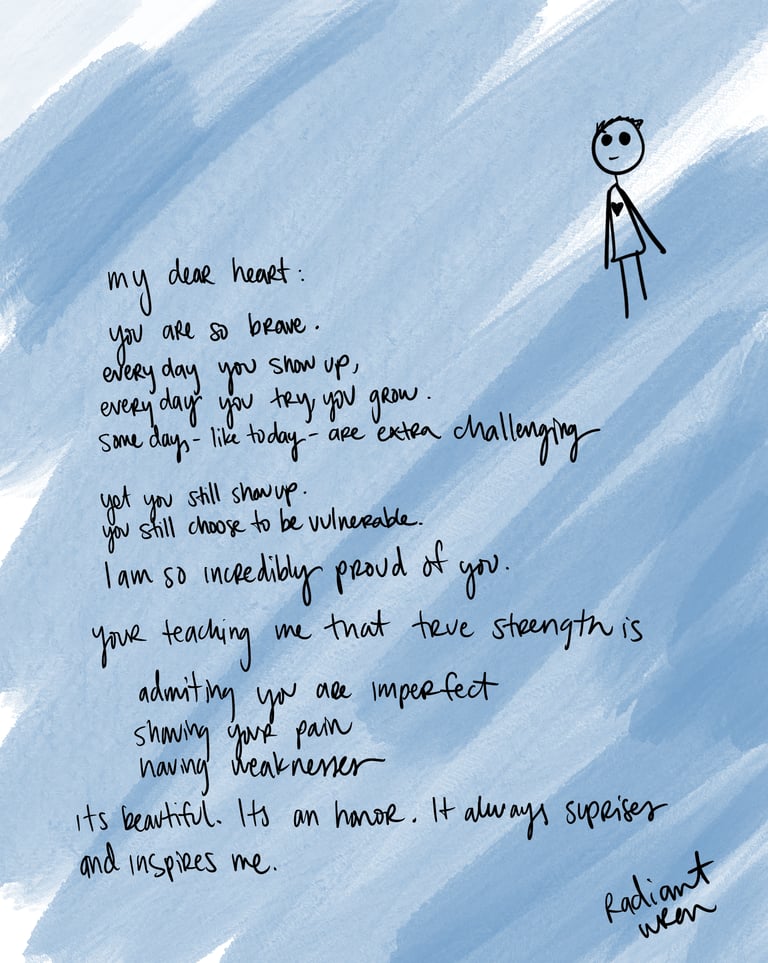 my dear heart:
you are so brave.
every day you show up,
every day you try, you grow.
some days - like today - are extra challenging
yet you still show up.
you still choose to be vulnerable.
I am so incredibly proud of you.
your teaching me that true strength is
admiting you are imperfect
showing your pain
having weaknesses
its beautiful. Its an honor. It always suprises
and inspires me.
Radiant
wren